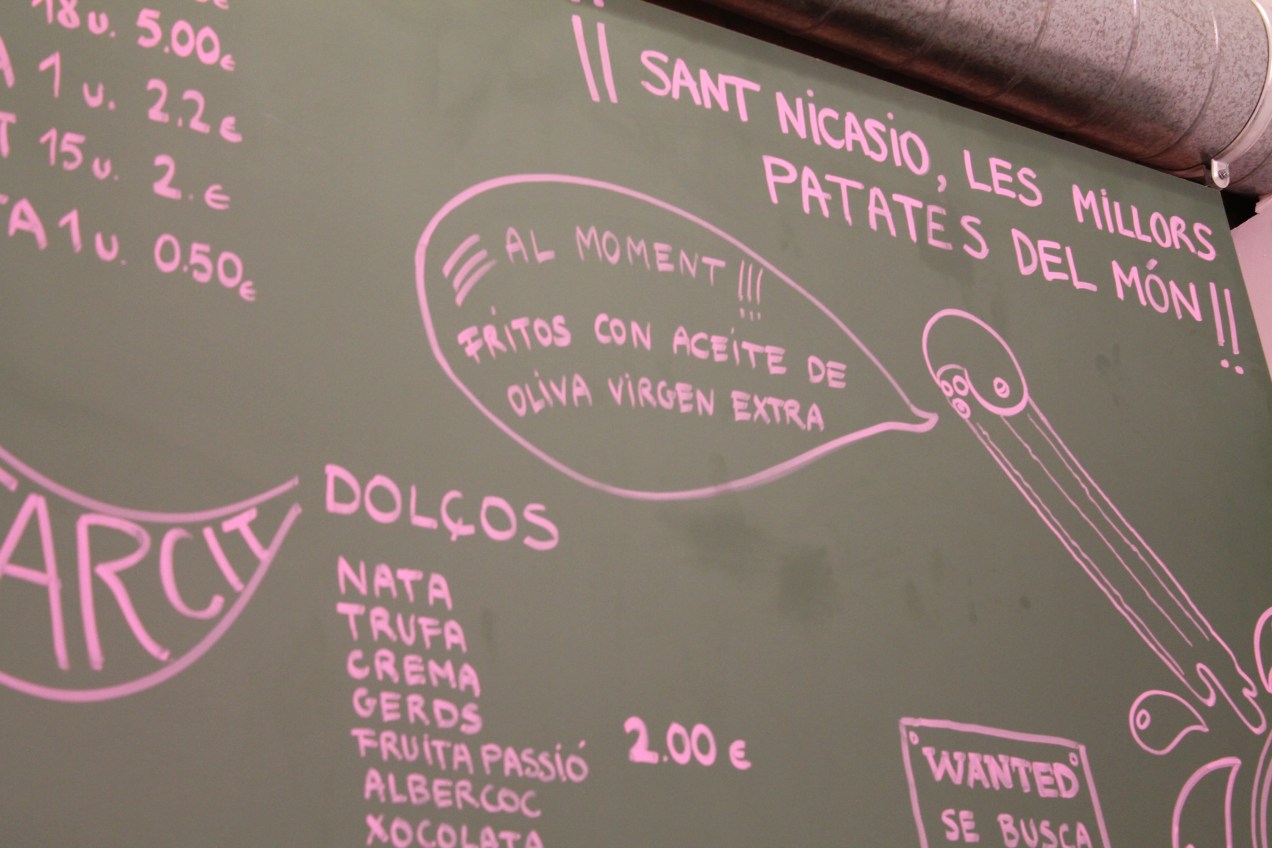 18 u. 5.00€
A 1 u. 2.2€
T 15 u. 2.€
TA 1 u. 0.50€
!! SANT NICASIO, LES MILLORS
PATATES DEL MÓN!!
AL MOMENT!!!
FRITOS CON ACEITE DE
OLIVA VIRGEN EXTRA
FARCIT
DOLÇOS
NATA
TRUFA
CREMA
GERDS
FRUITA PASSIÓ 2.00€
ALBERCOC
XOCOLATA
WANTED
SE BUSCA